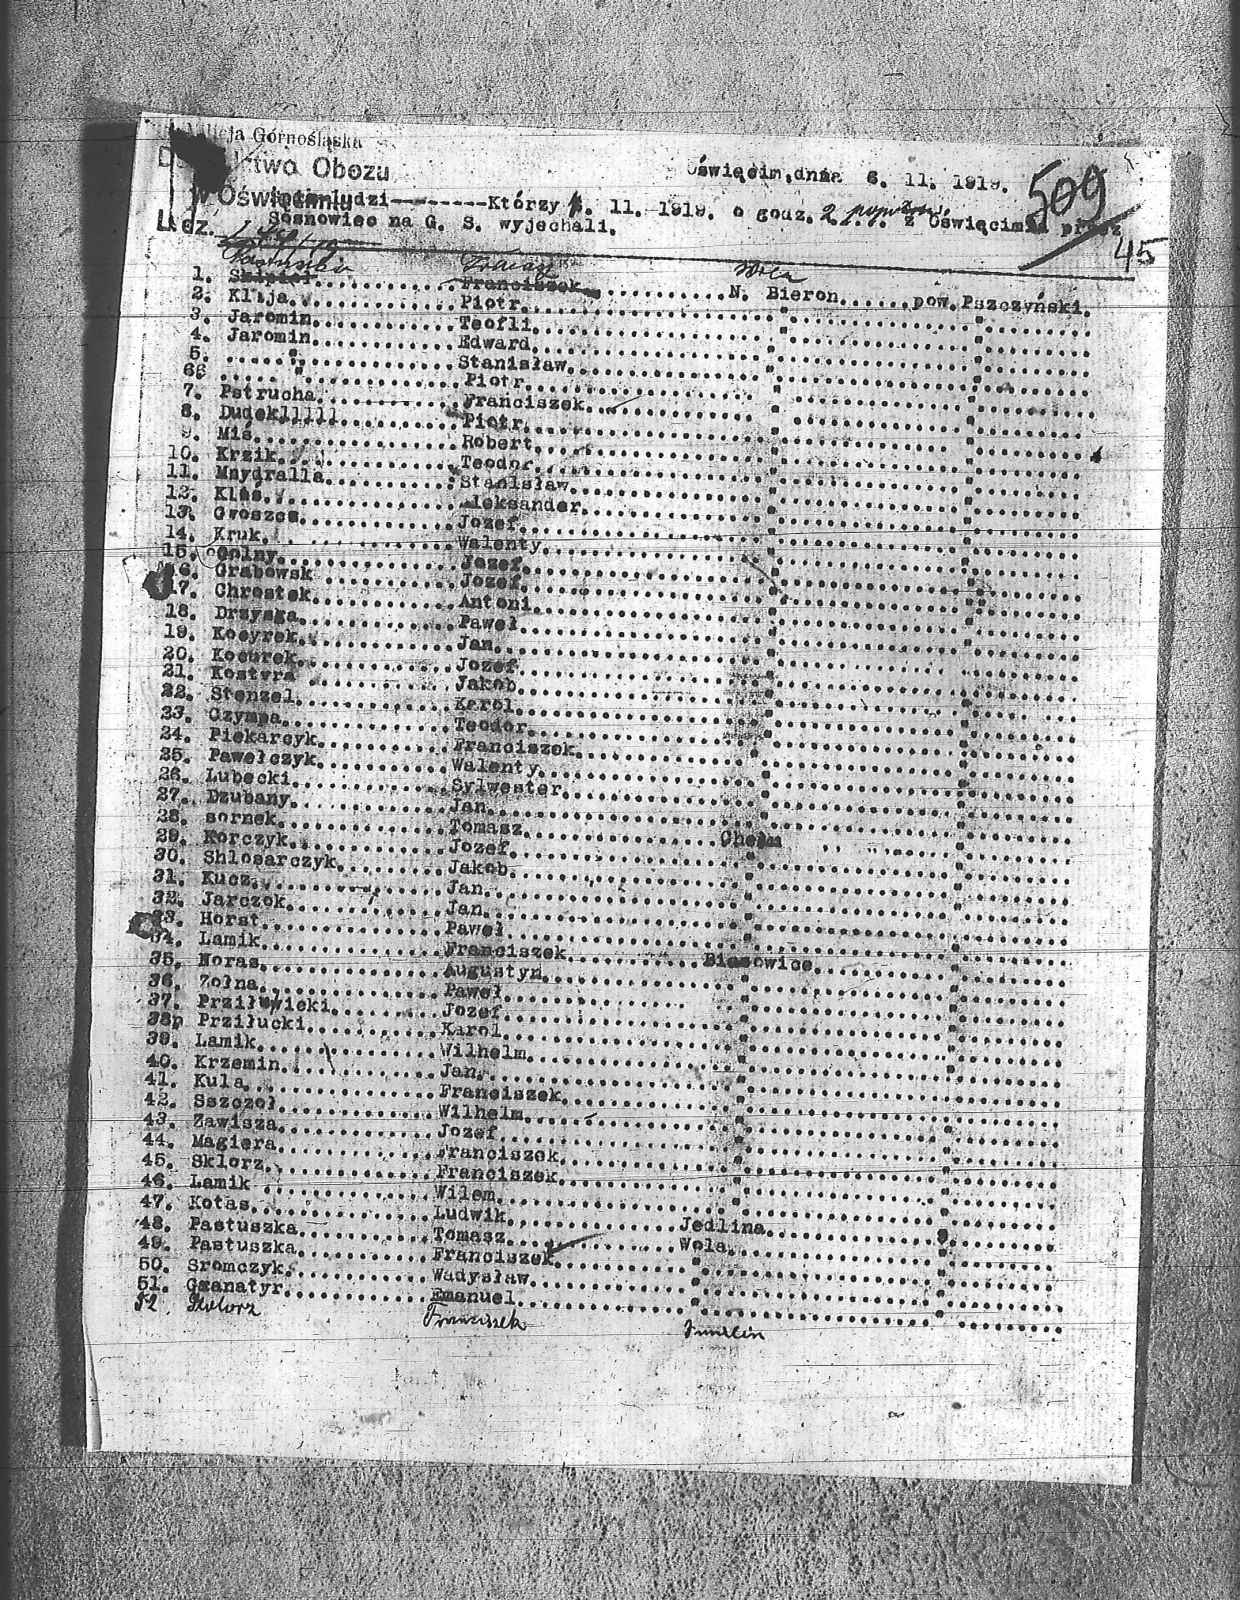 Milicja Górnośląska
Dowództwo Obozu
w Oświęcimiu
L. dz.
Oświęcim, dnia 6. 11. 1919.
509
45
ludzi---------Którzy 6. 11. 1919. o godz. 2 z Oświęcimia przez
Sosnowiec na G. S. wyjechali.
Pastuszka Franciszek Wola
1. Skipioł Franciszek N. Bieron pow. Pszczyński.
2. Klija Piotr " "
3. Jaromin Teofli " "
4. Jaromin Edward " "
5. " Stanisław " "
66 " Piotr " "
7. Pstrucha Franciszek " "
8. Dudeklllll Piotr " "
9. Miś Robert " "
10. Krzik Teodor " "
11. Mnydralla Stanisław " "
12. Klos Aleksander " "
13. Gwoszcz Jozef " "
14. Kruk Walenty " "
15. Golny Jozef " "
16. Grabowsk Jozef " "
17. Chrostek Antoni " "
18. Drzysga Paweł " "
19. Kocyrek Jan " "
20. Kocurek Jozef " "
21. Kostyra Jakob " "
22. Stenzel Karol " "
23. Czympa Teodor " "
24. Piekarcyk Franciszek " "
25. Pawełczyk Walenty " "
26. Lubecki Sylwester " "
27. Dzubany Jan " "
28. sornek Tomasz Chełm "
29. Korczyk Jozef " "
30. Shlosarczyk Jakob " "
31. Kucz Jan " "
32. Jarczok Jan " "
33. Horst Paweł " "
34. Lamik Franciszek Biasowice "
35. Noras Augustyn " "
36. Zołna Paweł " "
37. Przilucicki Jozef " "
38p Przilucki Karol " "
39. Lamik Wilhelm " "
40. Krzemin Jan " "
41. Kula Franciszek " "
42. Sszczoł Wilhelm " "
43. Zawisza Jozef " "
44. Magiera Franciszek " "
45. Sklorz Franciszek " "
46. Lamik Wilem " "
47. Kotas Ludwik Jedlina "
48. Pastuszka Tomasz Wola "
49. Pastuszka Franciszek " "
50. Sromczyk Wadysław " "
51. Granatyr Emanuel " "
52 Franciszek